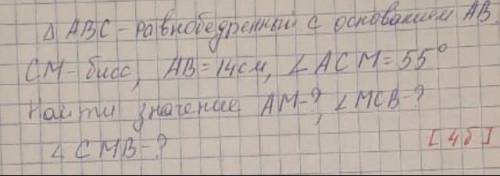 △ ABC - равнобедренный с основанием AB
CM - бисс, AB = 14см, ∠ACM = 55°
Найти значение AM-?, ∠MCB-?
∠ CMB-?
[4б]